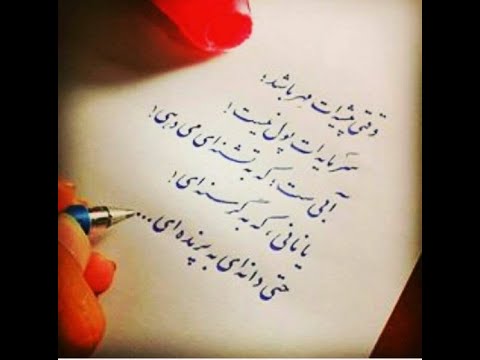 وقتی پیشه‌ات مهر باشد؛
سرمایه‌ات پول نیست!
آبی ست؛ که به تشنه‌ای می دهی!
یا نانی، که به گرسنه‌ای!
حتی دانه‌ای به پرنده‌ای...